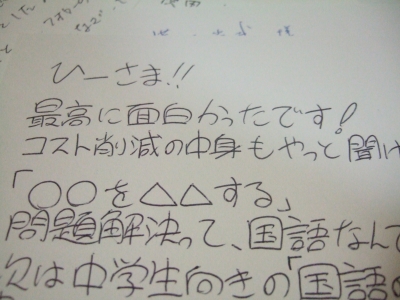 ひーさま!!
最高に面白かったです!
コスト削減の中身もやっと聞け
「〇〇を△△する」
問題解決って、国語なんて
次は中学生向きの「国語の